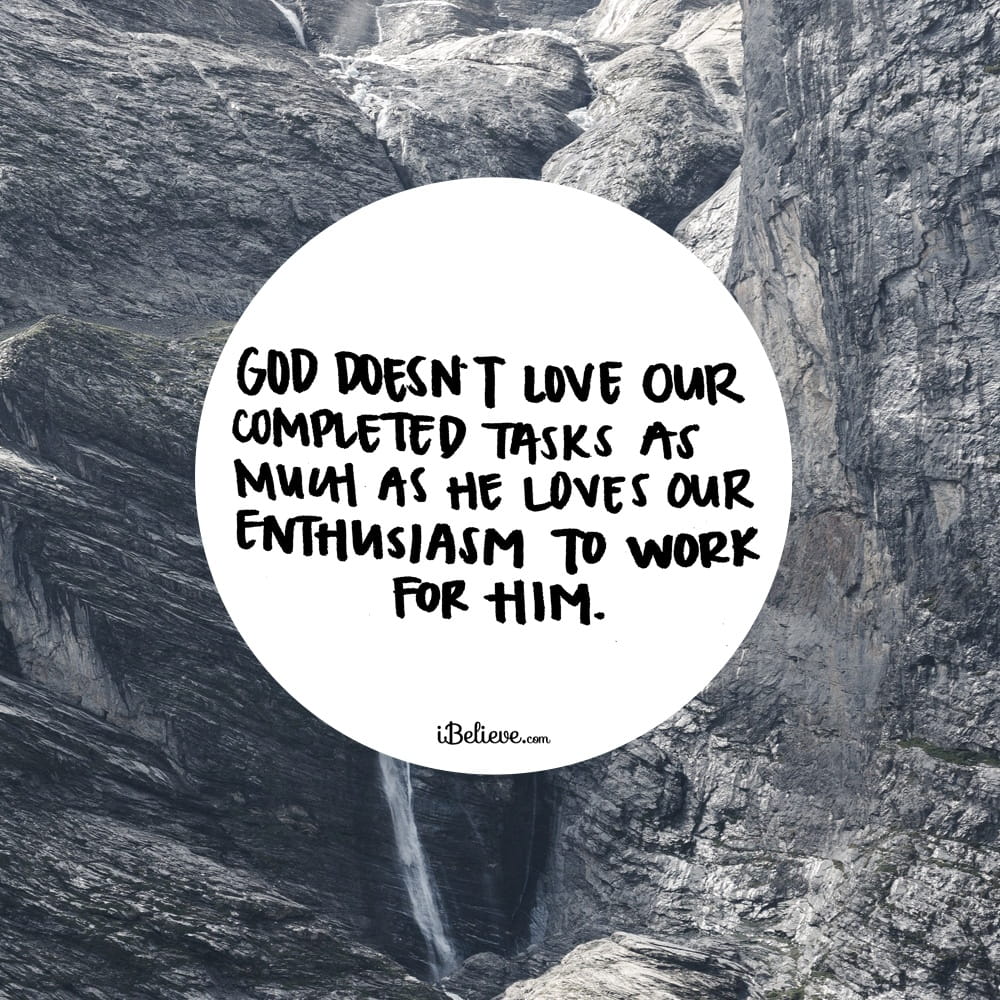 GOD DOESN'T LOVE OUR
COMPLETED TASKS AS
MUCH AS HE LOVES OUR
ENTHUSIASM TO WORK
FOR HIM.
iBelieve.com